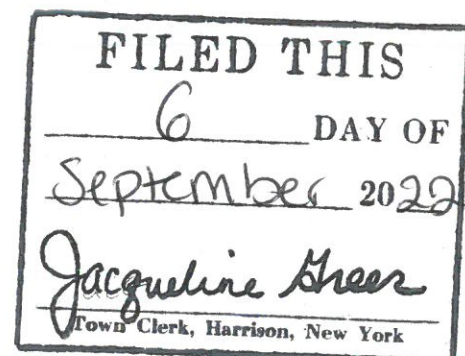 FILED THIS
6 DAY OF
September 2022
Jacqueline Greer
Town Clerk, Harrison, New York